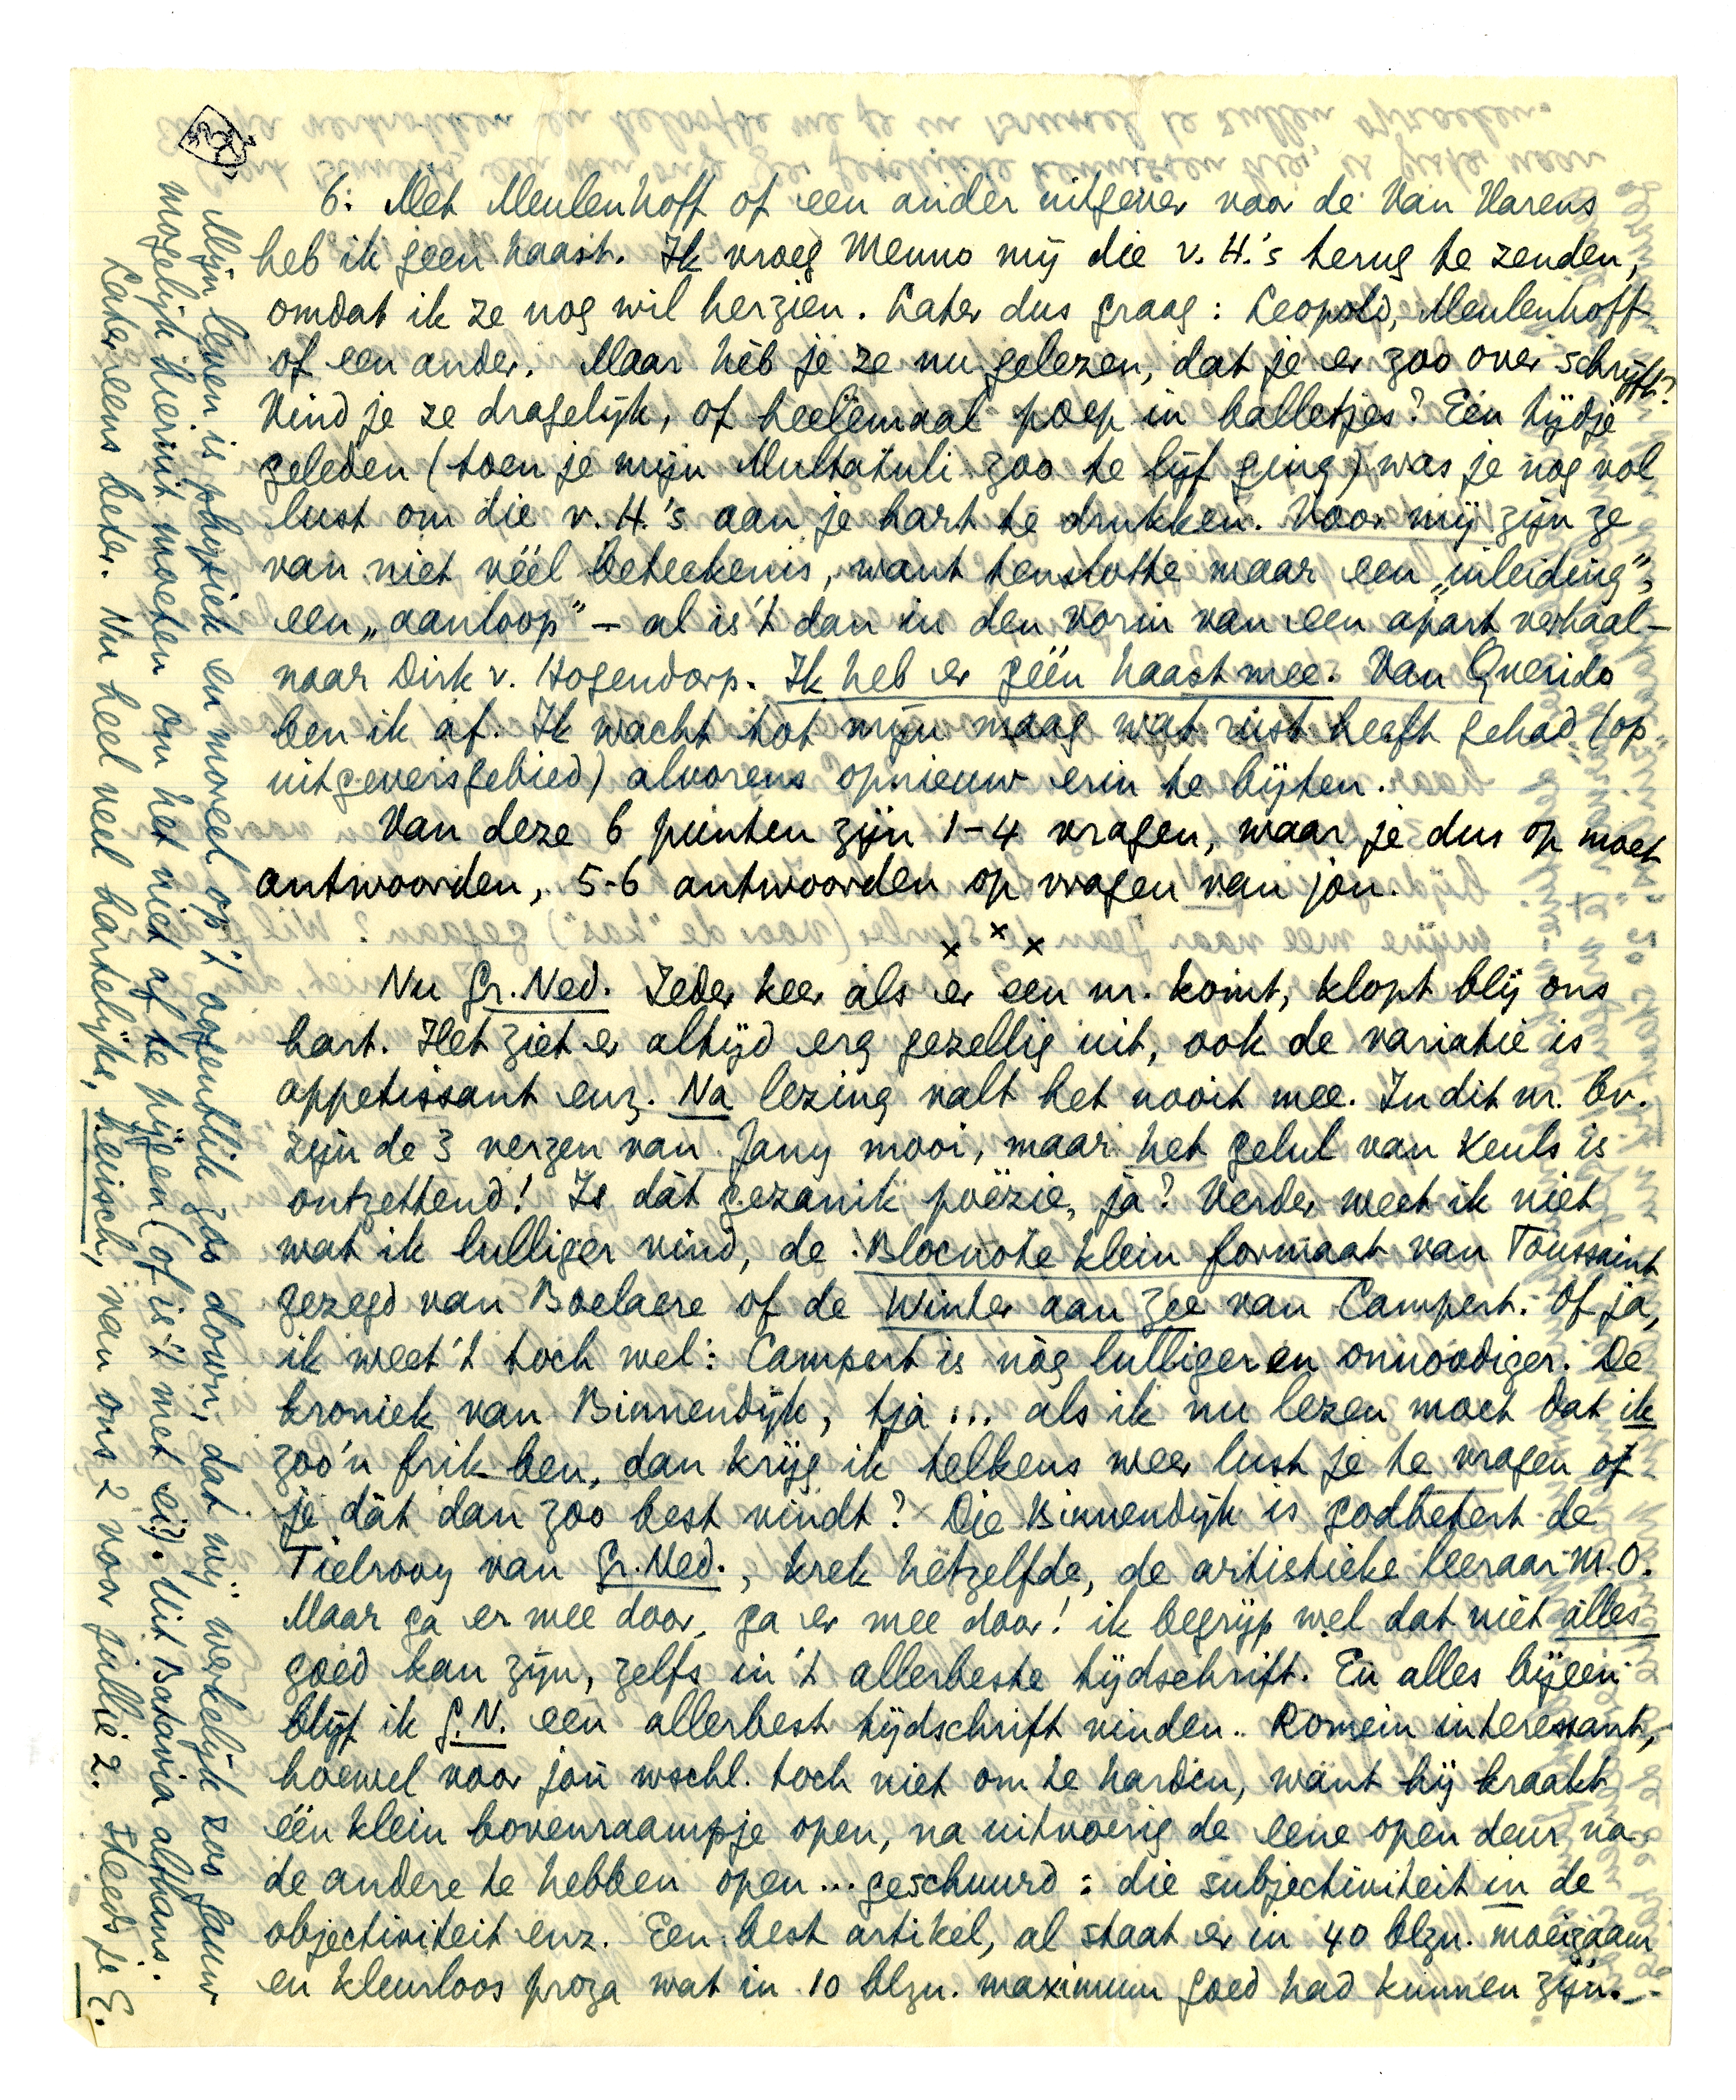 6: Met Meulenhoff of een ander uitgever voor de Van Harens
heb ik geen haast. Ik vroeg Menno mij die v. H.'s terug te zenden,
omdat ik ze nog wil herzien. Later dus graag: Leopold, Meulenhoff
of een ander. Maar hèb je ze nu gelezen, dat je er zoo over schrijft?
Vind je ze dragelijk, of heelemaal poep in balletjes? Een tijdje
geleden (toen je mijn Multatuli zoo te lijf ging) was je nog vol
lust om die v. H.'s aan je hart te drukken. Voor mij zijn ze
van niet véél beteekenis, want tenslotte maar een „inleiding",
een „aanloop" – al is 't dan in den vorm van een apart verhaal –
naar Dirk v. Hogendorp. Ik heb er géén haast mee. Van Querido
ben ik af. Ik wacht tot mijn maag wat rust heeft gehad (op
uitgeversgebied) alvorens opnieuw erin te bijten.
Van deze 6 punten zijn 1-4 vragen, waar je dus op moet
antwoorden, 5-6 antwoorden op vragen van jou.
x x x
Nu Gr. Ned. Ieder keer als er een nr. komt, klopt blij ons
hart. Het ziet er altijd erg gezellig uit, ook de variatie is
appetissant enz. Na lezing valt het nooit mee. In dit nr. bv.
zijn de 3 verzen van Jany mooi, maar het gelul van Keuls is
ontzettend! Is dàt gezanik poëzie, ja? Verder weet ik niet
wat ik lulliger vind, de Blocnote klein formaat van Toussaint
gezegd van Boelaere of de Winter aan Zee van Campert. Of ja,
ik weet 't toch wel: Campert is nòg lulliger en onnoodiger. De
kroniek van Binnendijk, tja ... als ik nu lezen moet dat ik
zoo'n frik ben, dan krijg ik telkens weer lust je te vragen of
je dàt dan zoo best vindt? Die Binnendijk is godbetert de
Tielrooy van Gr. Ned., krek hètzelfde, de artistieke leeraar M.O.
Maar ga er mee door, ga er mee door! ik begrijp wel dat niet alles
goed kan zijn, zelfs in 't allerbeste tijdschrift. En alles bijeen
blijf ik G.N. een allerbest tijdschrift vinden. Romein interessant,
hoewel voor jou wschl. toch niet om te harden, want hij kraakt
één klein bovenraampje open, na uitvoerig de eene open deur na
de andere te hebben open ... geschuurd: die subjectiviteit in de
objectiviteit enz. Een best artikel, al staat er in 40 blzn. moeizaam
en kleurloos proza wat in 10 blzn. maximum goed had kunnen zijn. –
Mijn leven is physiek en moreel op 't oogenblik zoo down, dat mij werkelijk zoo gauw
mogelijk hieruit moeten om het niet af te pijgen (of is 't met ei?). Uit Batavia althans.
Later eens beter. Nu heel veel hartelijks, heusch, van ons 2 voor jullie 2. Steeds je E.